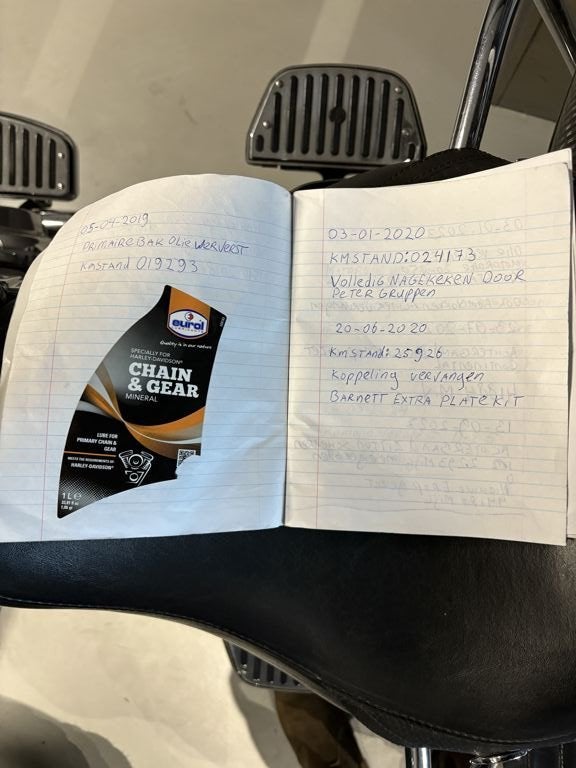 05-04-2019
PRIMAIRE BAK OLIE VERVERST
Kmstand 019293
eurol
Quality is in our nature
SPECIALLY FOR
HARLEY-DAVIDSON®
CHAIN
& GEAR
MINERAL
LUBE FOR
PRIMARY CHAIN &
GEAR
MEETS THE REQUIREMENTS OF:
HARLEY-DAVIDSON®
1 L e
03-01-2020
KMSTAND:024173
Volledig NAGEKEKEN DOOR
PETER GRUPPEN
20-06-2020
Kmstand: 25926
Koppeling vervangen
BARNETT EXTRA PLATE KIT